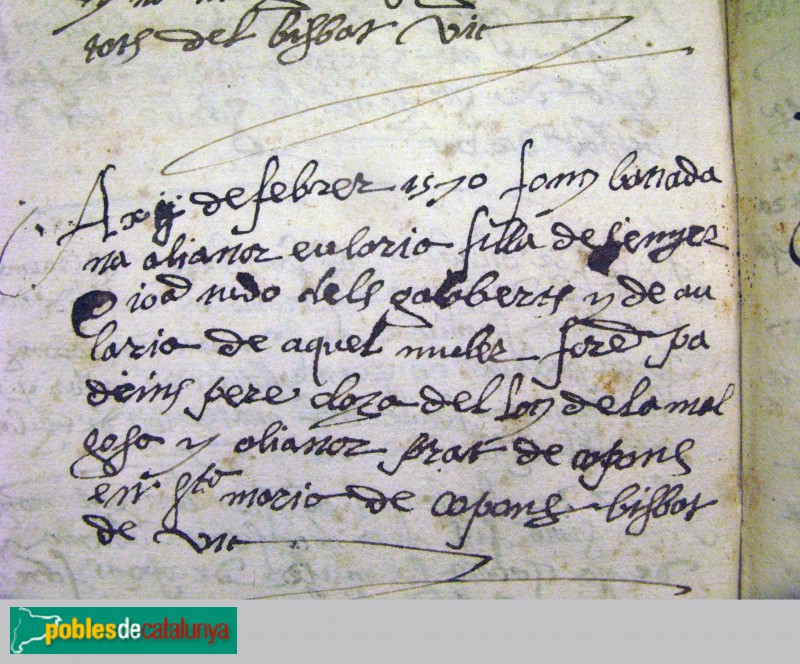 tots del bisbat Vic
A xij de febrer 1570 fonch batiada
na alianor eularia filla de senyer
joã nudo dels galoberts y de au
laria de aquel muler forẽ pa
drins pere cloza del loch de la mol
gosa y alianor prat de copons
en sta maria de copons bisbat
de Vic
poblesdecatalunya